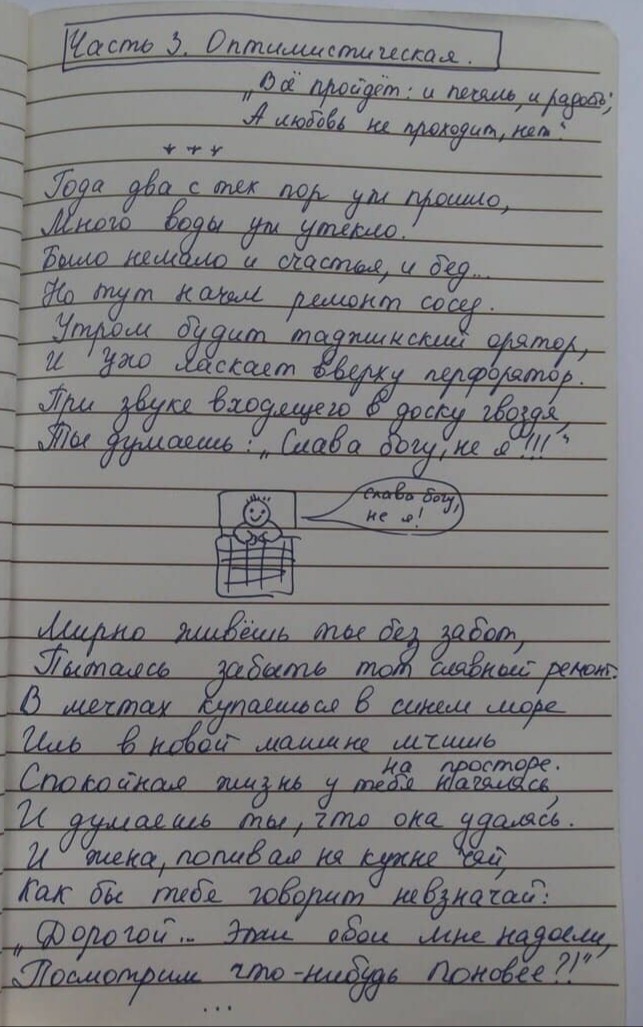 Часть 3. Оптимистическая.
„Всё пройдёт: и печаль, и радость;
А любовь не проходит, нет“
+++
Года два с тех пор уж прошло,
Много воды уж утекло.
Было немало и счастья, и бед...
Но тут начал ремонт сосед.
Утром будит таджикский оратор,
И ухо ласкает вверху перфоратор.
При звуке входящего в доску гвоздя,
Ты думаешь: „Слава богу, не я!!!“
слава богу,
не я!
Мирно живёшь ты без забот,
Пытаясь забыть тот славный ремонт.
В мечтах купаешься в синем море
Иль в новой машине мчишь
на просторе.
Спокойная жизнь у тебя началась,
И думаешь ты, что она удалась.
И жена, попивая на кухне чай,
Как бы тебе говорит невзначай:
„Дорогой... Эти обои мне надоели,
Посмотрим что-нибудь поновее?!“
...